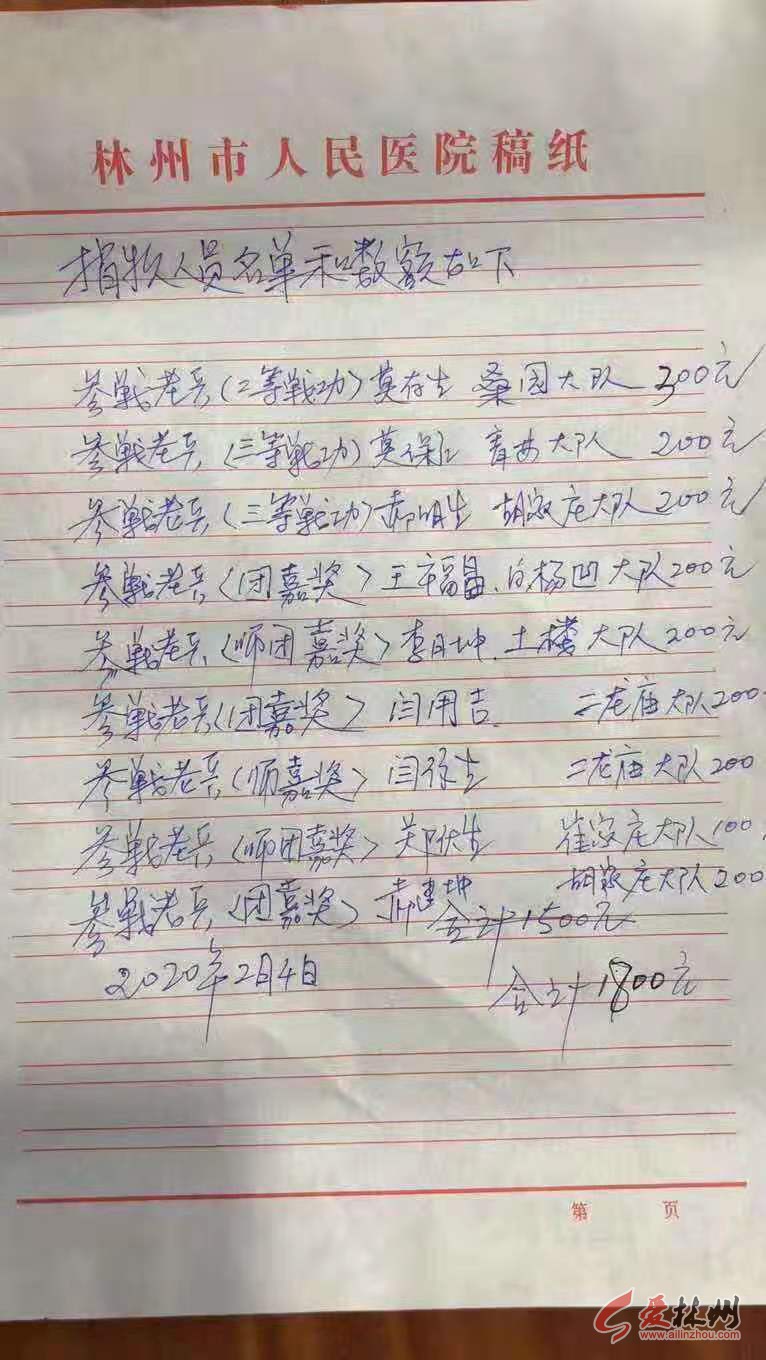 林州市人民医院稿纸
捐款人员名单和数额如下
参战老兵（二等战功）莫存生 桑园大队 300元
参战老兵（三等战功）莫保 大队 200元
参战老兵（三等战功）郝明生 胡家庄大队200元
参战老兵（团嘉奖）王福昌、白杨凹大队200元
参战老兵（师团嘉奖）李月坤、土楼大队200元
参战老兵（团嘉奖）闫用吉 二龙庙大队200
参战老兵（师嘉奖）闫徐生 二龙庙大队200
参战老兵（师团嘉奖）郑伏生 崔家庄大队100
参战老兵（团嘉奖）郝建坤 胡家庄大队200
合计1500元
2020年2月4日
合计1800元
第 页
爱林州
www.ailinzhou.com